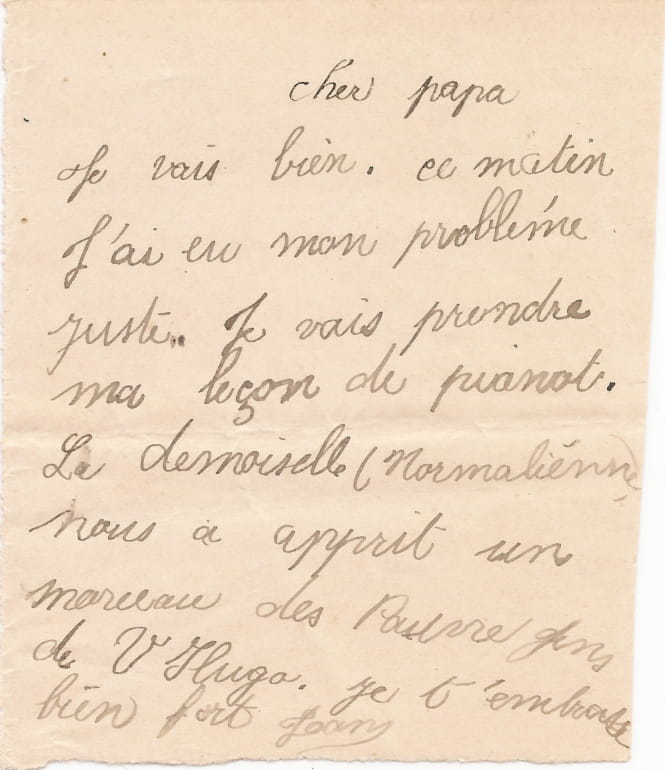 cher papa
Je vais bien. ce matin
J'ai eu mon problème
juste.. Je vais prendre
ma leçon de pianot.
La demoiselle (Normaliénne)
nous a apprit un
morceau des Pauvre Gens
de V Hugo. je t'embrasse
bien fort Jean